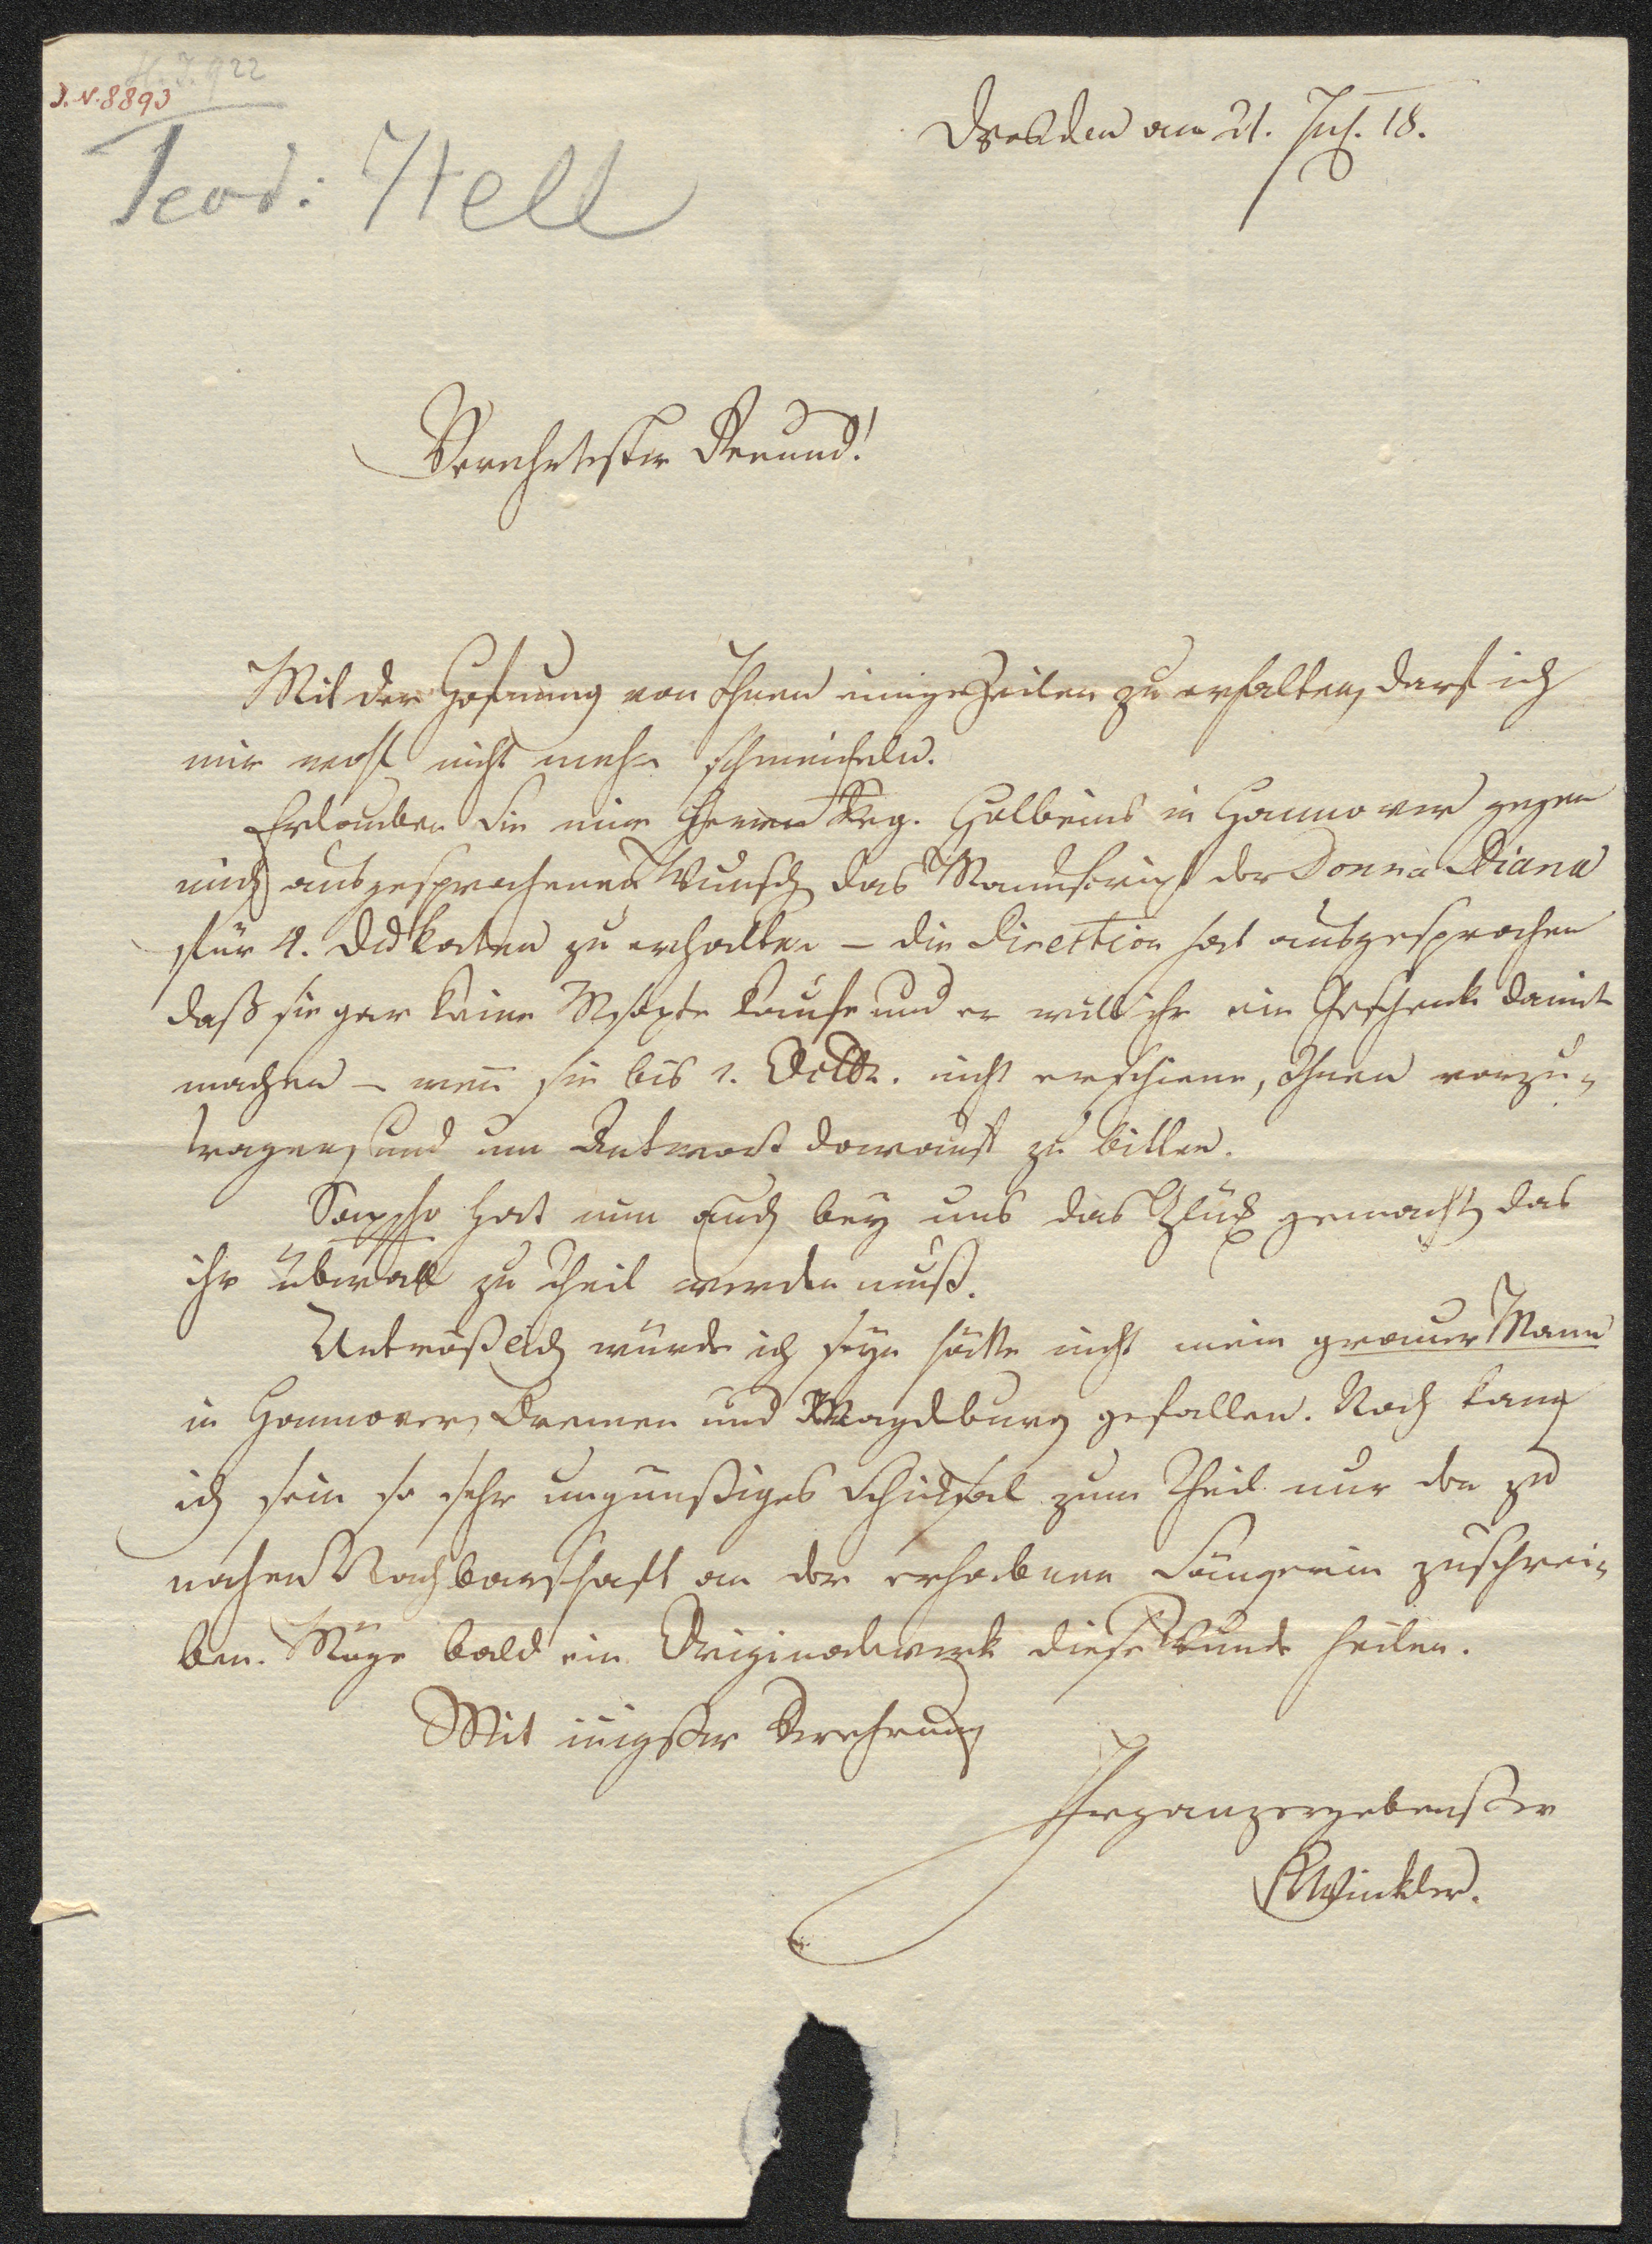 H. I. 922
J. N. 8893
Teod: Hell
Dresden am 21. Jul. 18.
Verehrtester Freund!
Mit der Hofnung von Ihnen einige Zeilen zu erhalten, darf ich
mir wohl nicht mehr schmeicheln.
Erlauben Sie mir Herrn Reg. Holbeins in Hannover gegen
mich ausgesprochenen Wunsch das Manuscript der Donna Diana
für 4. Dukaten zu erhalten – die Direction hat ausgesprochen
daß sie gar keine Mscpte kaufe und er will ihr ein Geschenk damit
machen – wenn sie bis 1. Octbr. nicht erschiene, Ihnen vorzu-
tragen, und um Antwort darauf zu bitten.
Sappho hat nun auch bey uns das Glück gemacht, das
ihr überall zu Theil werden muß.
Untröstlich würde ich seyn hätte nicht mein grauer Mann
in Hannover, Bremen und Magdburg gefallen. Noch kann
ich sein so sehr ungünstiges Schicksal zum Theil nur der zu
nahen Nachbarschaft an der erhabenen Sängerin zuschrei-
ben. Möge bald ein Originalwerk diese Wunde heilen.
Mit innigster Verehrung
Ihr ganz ergebenster
Winkler.